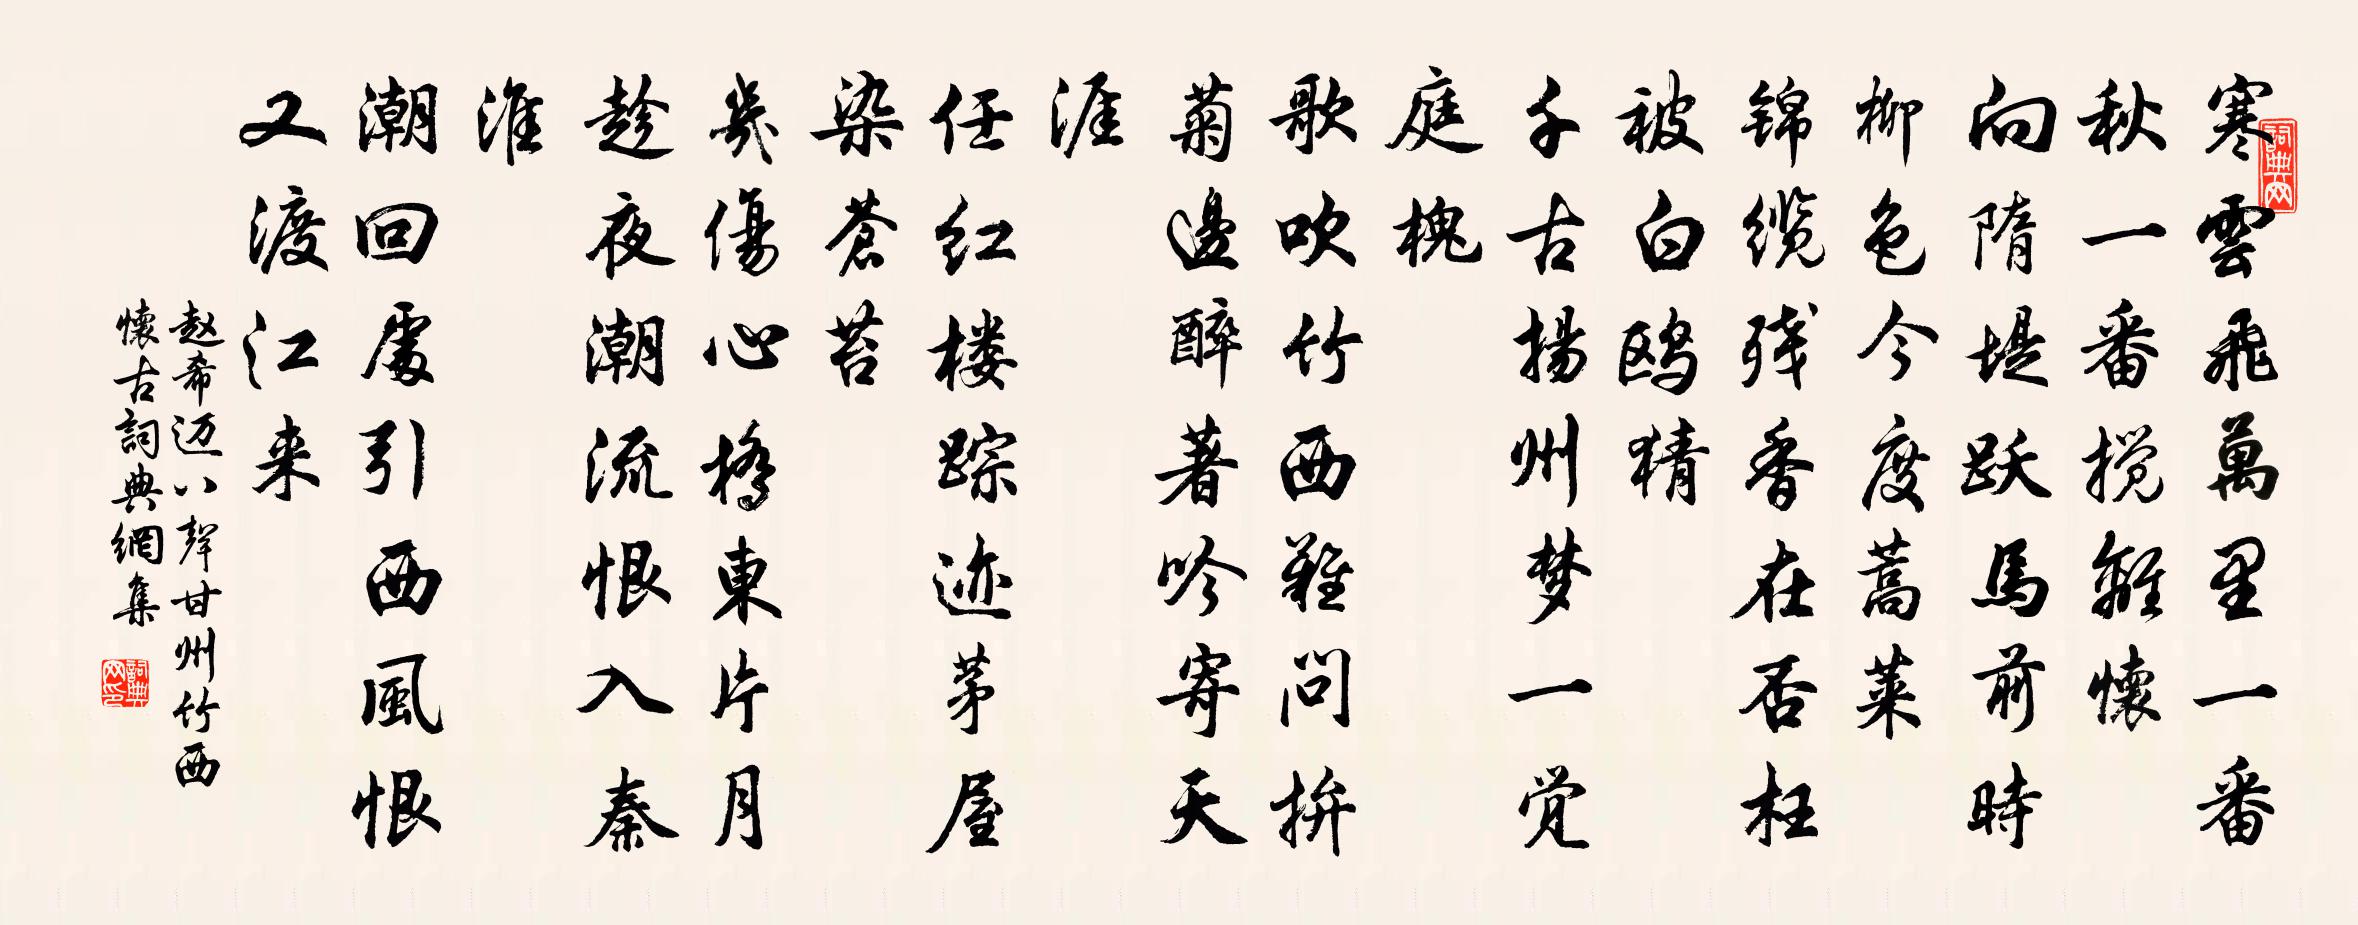 寒雲飛萬里一番
秋一番搅離懷
向隋堤跃馬前時
柳色今度蒿莱
锦缆残香在否枉
被白鸥猜
千古揚州梦一觉
庭槐
歌吹竹西難問拚
菊邊醉著吟寄天
涯
任红楼踪迹茅屋
染蒼苔
幾傷心橋東片月
趁夜潮流恨入秦
淮
潮回處引西風恨
又渡江来
赵希迈八聲甘州竹西
懷古詞典網集
詞典网
詞典网印